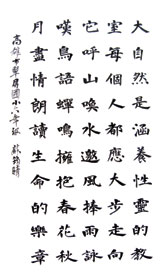 大自然是涵養性靈的教
室每個人都應大步走向
它呼山喚水邀風捧雨詠
嘆鳥語蟬鳴擁抱春花秋
月盡情朗讀生命的樂章
高雄市國小六年級 蘇晴